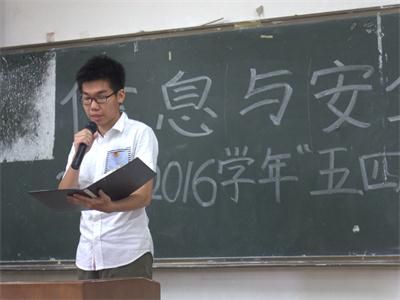 信息与安全
2016学年“五四